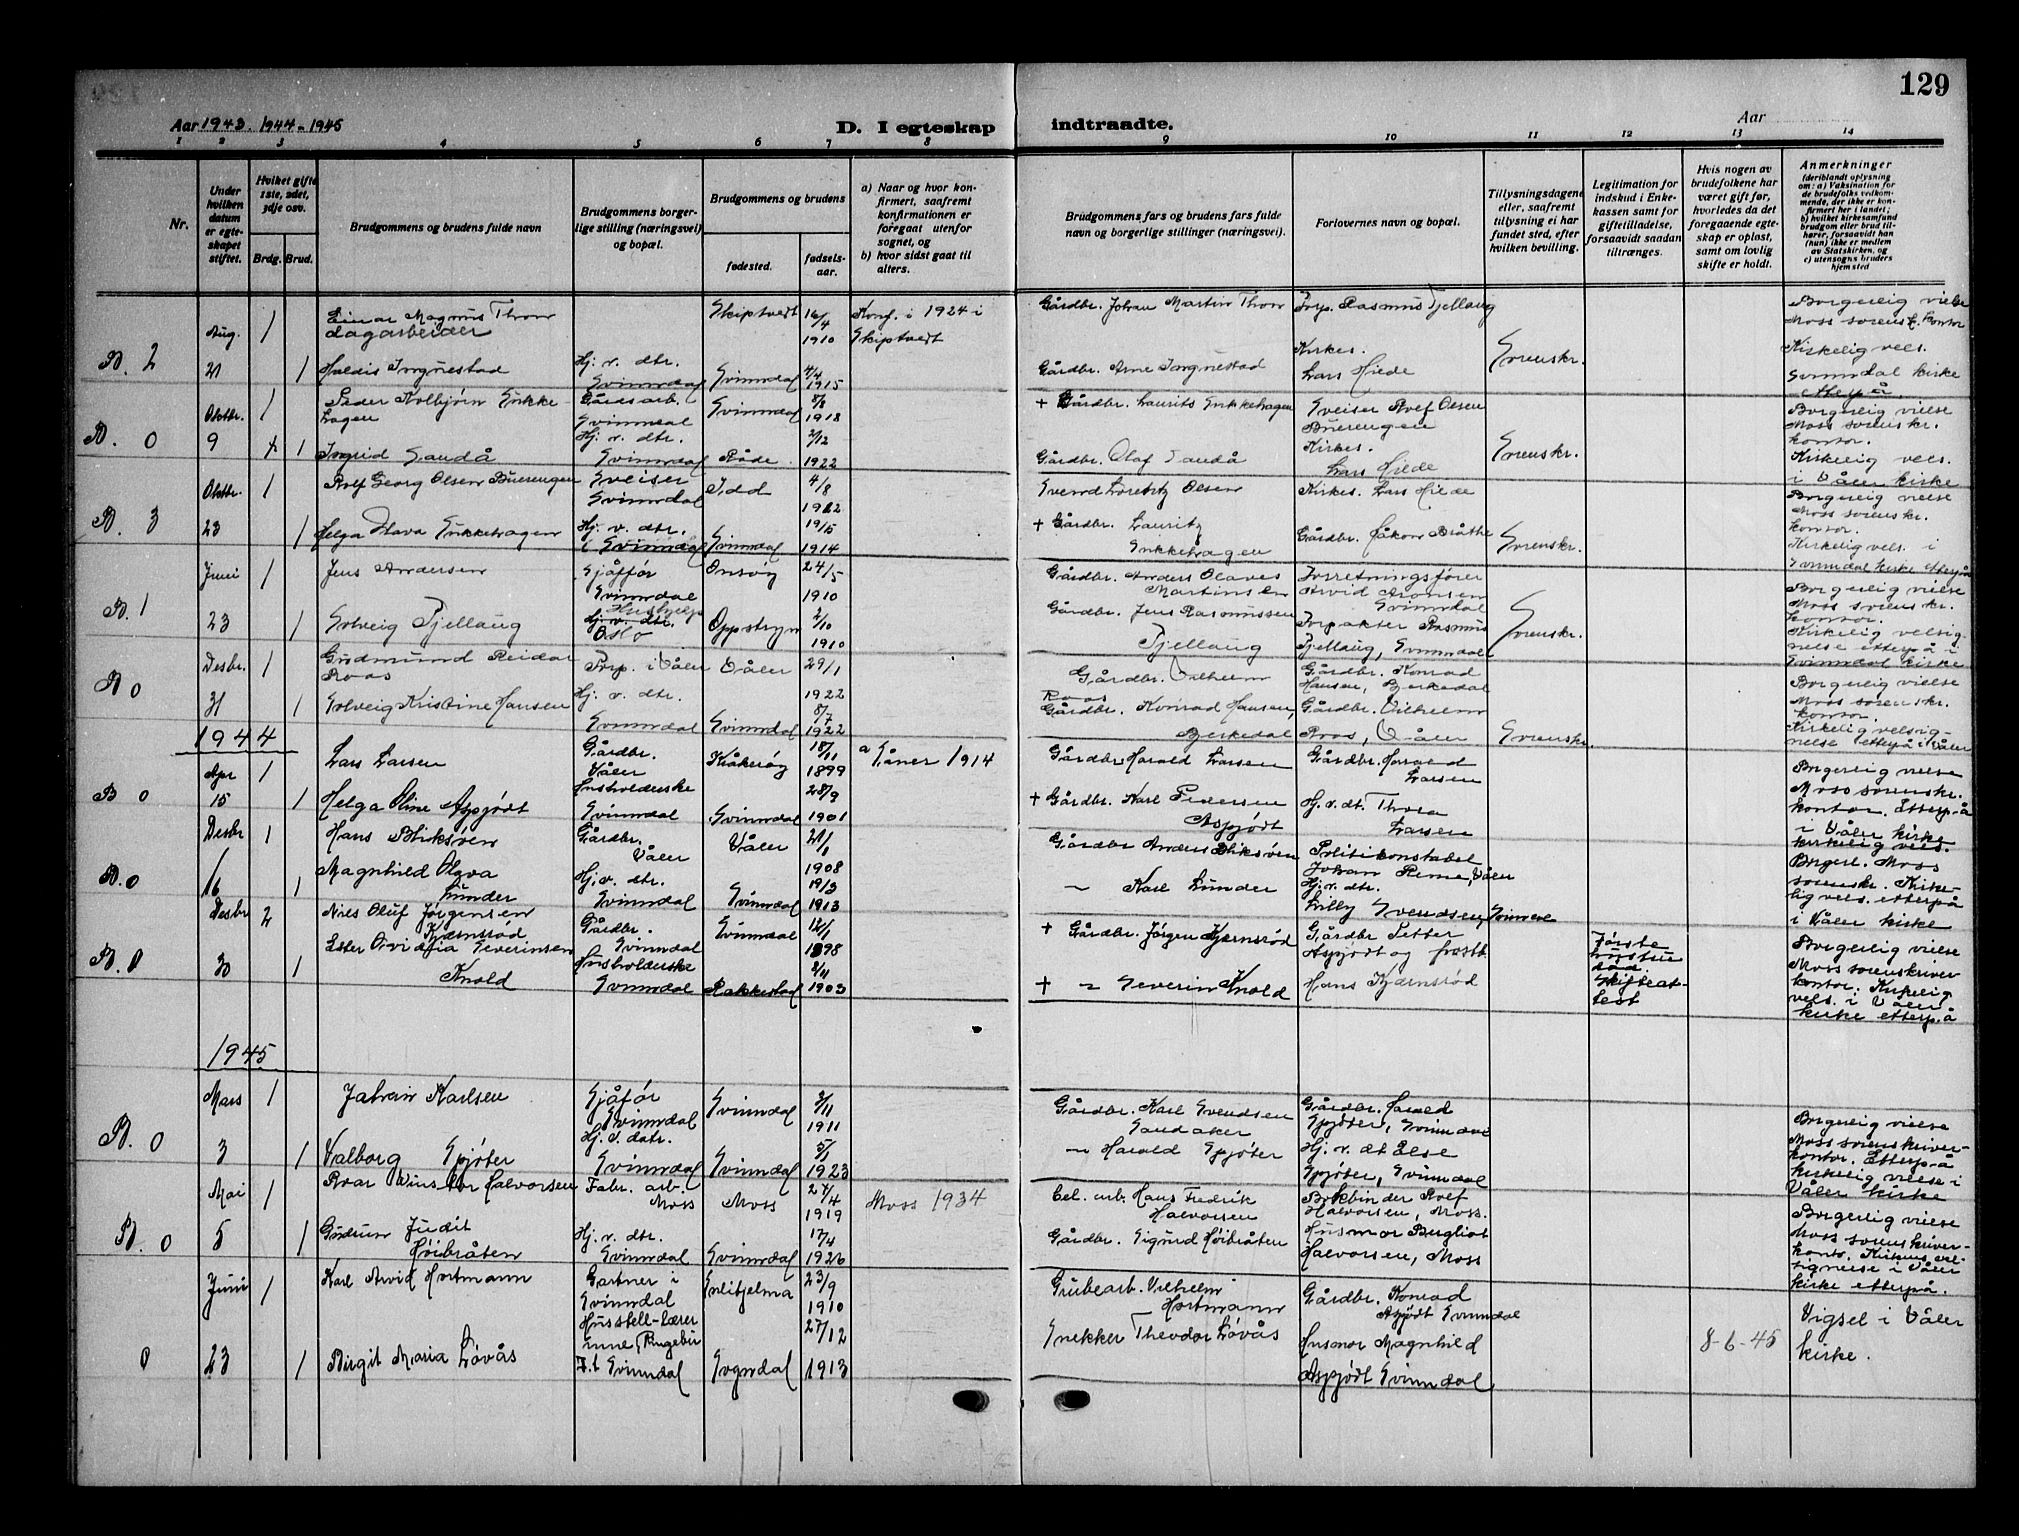 129
Aar 1943. 1944-1945
D. I egteskap indtraadte.
Aar
1 2 3 4 5 6 7 8 9 10 11 12 13 14
Nr.
Under hvilken datum er egteskapet stiftet.
Hvilket gifte 1ste, 2det, 3dje osv.
Brdg. Brud.
Brudgommens og brudens fulde navn
Brudgommens borgerlige stilling (næringsvei) og bopæl.
Brudgommens og brudens
fødested.
fødselsaar.
a) Naar og hvor konfirmert, saafremt konfirmationen er foregaat utenfor sognet, og
b) hvor sidst gaat til alters.
Brudgommens fars og brudens fars fulde navn og borgerlige stillinger (næringsvei).
Forlovernes navn og bopæl.
Tillysningsdagene eller, saafremt tillysning ei har fundet sted, efter hvilken bevilling.
Legitimation for indskud i Enkekassen samt for giftetilladelse, forsaavidt saadan tiltrænges.
Hvis nogen av brudefolkene har været gift før, hvorledes da det foregaaende egteskap er opløst, samt om lovlig skifte er holdt.
Anmerkninger
(deriblandt oplysning om: a) Vaksination for de brudefolks vedkommende, der ikke er konfirmert her i landet; b) hvilket kirkesamfund brudgom eller brud tilhører, forsaavidt han (hun) ikke er medlem av Statskirken, og c) utensogns bruders hjemsted
B. 2 Aug. 21
1 Einar Magnus Thon Skiptvedt 16/4 1910 Konf. i 1924 i Skiptvedt
Dagarbeider
1 Haldis Ingnestad Hj. v. dtr. Svinndal Svinndal 4/4 1915
Gårdbr. Johan Martin Thon Forp. Rasmus Tjellaug
Gårdbr. Arne Ingnestad Kirkes. Lars Hilde Sorenskr.
Borgerlig vielse Moss sorensk. kontor Kirkelig vels. Svinndal kirke etterpå
B. 0 Oktbr. 9
1 Peder Kolbjørn Enkkehagen Gårdsarb. Svinndal Svinndal 8/8 1918
1 Ingrid Sandå Hj. v. dtr. Svinndal Råde 2/12 1922
+ Gårdbr. Laurits Enkkehagen Sveiser Rolf Olsen Buerengen
Gårdbr. Olaf Sandå Kirkes. Lars Hilde Sorenskr.
Borgerlig vielse Moss sorenskr. kontor. Kirkelig vels. i Våler kirke
B. 3 Oktbr. 23
1 Rolf Georg Olsen Buerengen Sveiser Svinndal Idd 4/8 1912
1 Helga Olava Enkkehagen Hj. v. dtr. i Svinndal Svinndal 19/5 1914
Svend Loretz Olsen Kirkes. Lars Hilde
+ Gårdbr. Lauritz Enkkehagen Gårdbr. Håkon Bråthe Sorenskr.
Borgerlig vielse Moss sorenskr. kontor. Kirkelig vels. i Svinndal kirke etterpå
B. 1 Juni 23
1 Jens Andersen Sjåfør Svinndal Onsøy 24/5 1910
1 Solveig Tjellaug Hj. v. dtr. Hushjelp Oslo Oppstryn 2/10 1910
Gårdbr. Anders Olaves Martinsen Forretningsfører Arvid Aronsen Svinndal
Gårdbr. Jens Rasmussen Tjellaug Forpakter Rasmus Tjellaug, Svinndal Sorenskr.
Borgerlig vielse Moss sorenskr. kontor. Kirkelig velsignelse etterpå i Svinndal kirke
B. 0 Desbr. 31
1 Gudmund Reidar Roos Forp. i Våler Våler 29/1 1922
1 Solveig Kristine Hansen Hj. v. dtr. Svinndal Svinndal 8/7 1922
Gårdbr. Vilhelm Roos Gårdbr. Konrad Hansen, Bjerkedal
Gårdbr. Konrad Hansen, Bjerkedal Gårdbr. Vilhelm Roos, Våler Sorenskr.
Borgerlig vielse Moss sorenskr. kontor. Kirkelig velsignelse etterpå i Våler
1944
B 0 Apr 15
1 Lars Larsen Gårdbr. Våler Kråkerøy 18/11 1899 a Gåner 1914
1 Helga Oline Aspjødt Husholderske Svinndal Svinndal 28/9 1901
Gårdbr. Harald Larsen Gårdbr. Harald Larsen
+ Gårdbr. Karl Pedersen Aspjødt Hj. v. dt. Thora Larsen
Borgerlig vielse Moss sorenskr. kontor. Etterpå i Våler kirke kirkelig vels.
B. 0 Desbr 16
1 Hans Bliksøen Gårdbr. Våler Våler 21/1 1908
1 Magnhild Olava Lunder Hj. v. dtr. Svinndal Svinndal 19/3 1913
Gårdbr. Anders Bliksøen Politikonstabel Johan Reme, Våler
" Karl Lunder Hj. v. dtr. Lilly Svendsen, Svinndal
Borgerl. Moss sorenskr. Kirkelig vels. etterpå i Våler kirke
B. 0 Desbr 30
2 Niels Oluf Jørgensen Kjærnsrød Gårdbr. Svinndal Svinndal 12/1 1898
1 Ester Ovidia Severinsen Knold Husholderske Svinndal Rakkestad 2/11 1903
+ Gårdbr. Jørgen Kjernsrød Gårdbr Petter Aspjødt og frostb.
+ " Severin Knold Hans Kjærnsrød
Første hustru død. Skifteattest
Borgerlig vielse Moss sorenskriverkontor. Kirkelig vels. i Våler kirke etterpå
1945
B. 0 Mars 3
1 Jahrein Karlsen Sjåfør Svinndal Svinndal 3/11 1911
1 Valborg Spjøter Hj. v. datr. Svinndal Svinndal 5/1 1923
Gårdbr. Karl Svendsen Sandaker Gårdbr. Harald Spjøter, Svinndal
" Harald Spjøter Hj. v. dt Else Spjøter, Svinndal
Borgerlig vielse Moss sorenskriverkontor. Etterpå kirkelig vielse i Våler kirke
B. 0 Mai 5
1 Roar Winslor Halvorsen Fabr. arb. Moss Moss 27/4 1919 Moss 1934
1 Gudrun Judit Høibråten Hj. v. dtr. Svinndal Svinndal 17/4 1926
Cel. arb. Hans Fredrik Halvorsen Bokbinder Rolf Halvorsen, Moss.
Gårdbr. Sigurd Høibråten Husmor Bergliot Halvorsen, Moss
Borgerlig vielse Moss sorenskriverkonto. Kirkens velsignelse i Våler kirke etterpå.
0 Juni 23
1 Karl Arvid Hortmann Gartner i Svinndal Sulitjelma 23/9 1910
1 Birgit Maria Løvås Husstell-lærerinne, Ringebu F.t Svinndal Sogndal 27/12 1913
Grubearb. Vilhelm Hortmann Gårdbr. Konrad Aspjødt Svinndal
Snekker Theodor Løvås Husmor Magnhild Aspjødt Svinndal
8-6-45
Vigsel i Våler kirke.